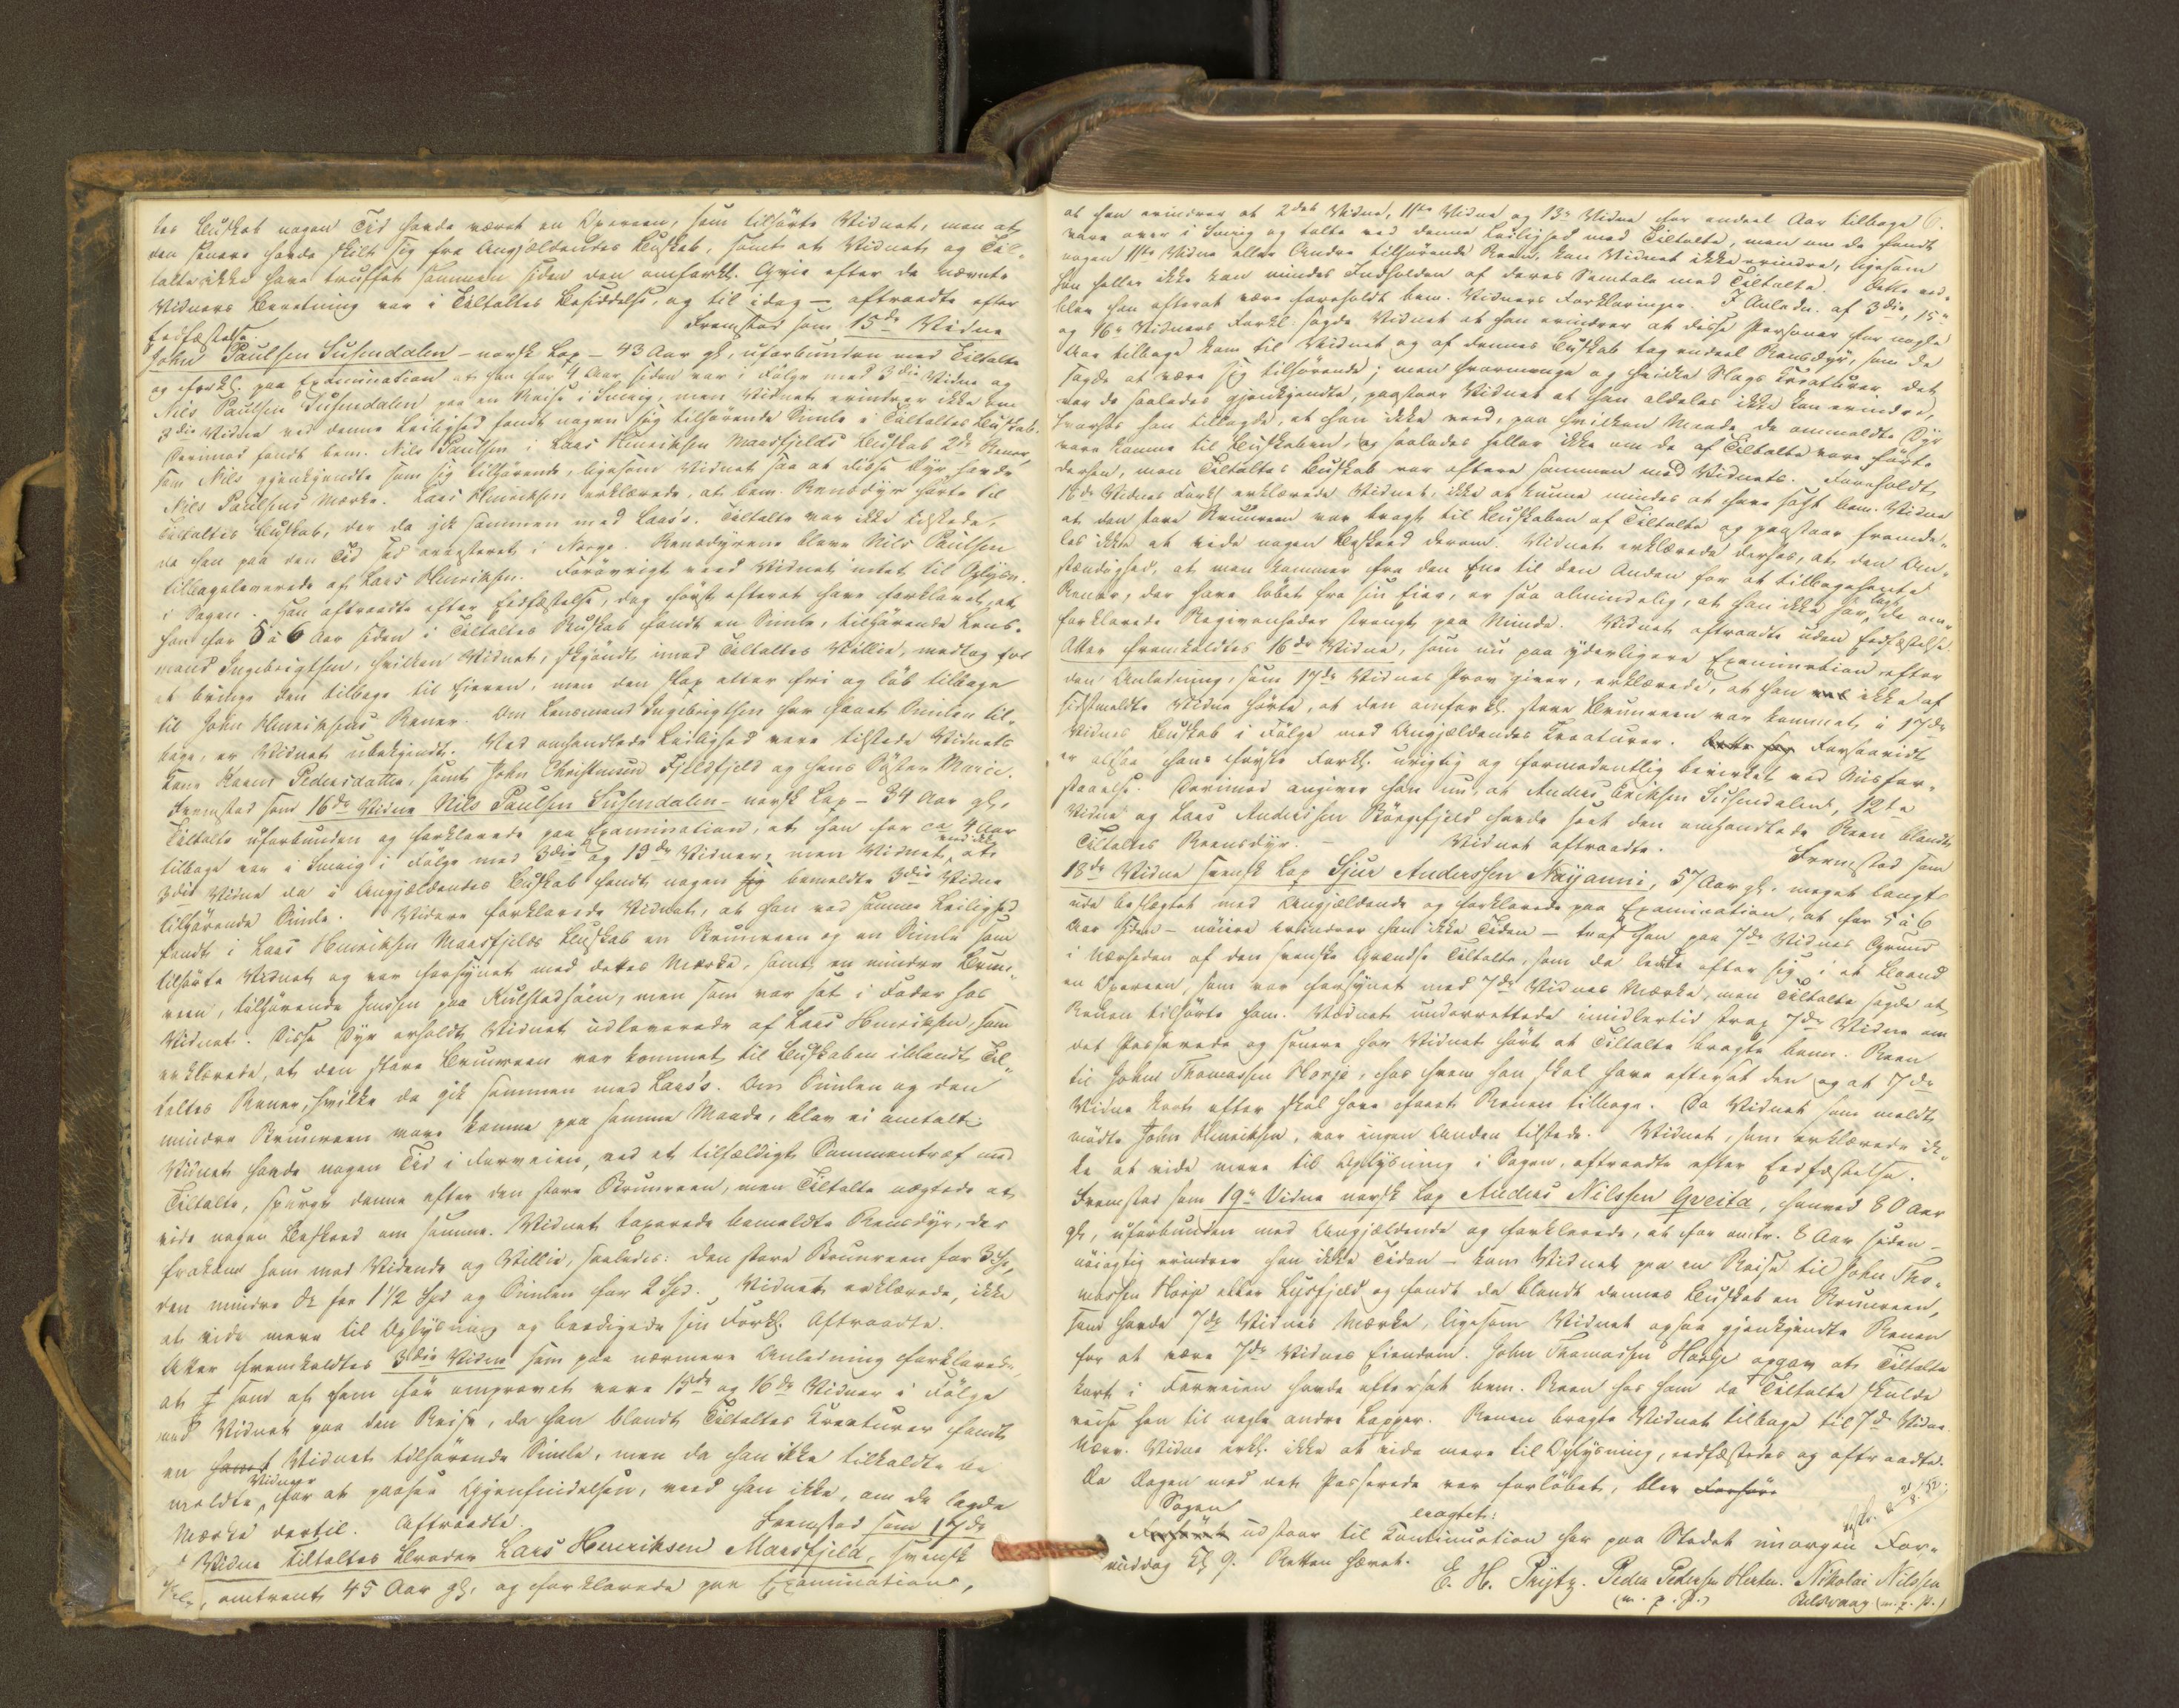 tes Buskab nogen Tid havde været en Oxereen, som tilhørte Vidnet, men at
den senere havde skilt sig fra Angjældendes Buskab, samt at Vidnet og Til-
talte ikke have truffet sammen siden den omforkl. Qvie efter de nævnte
Vidners Beretning var i Tiltaltes Besiddelse, og til idag – aftraadte efter
Edfæstelse. Fremstod som 15de Vidne
John Paulsen Susendalen – norsk Lap – 43 Aar gl., uforbunden med Tiltalte
og forkl. paa Examination at han for 4 Aar siden var i Følge med 3die Vidne og
Nils Paulsen Susendalen paa en Reise i Smvig, men Vidnet erindrer ikke om
3die Vidne ved denne Leilighed fandt nogen sig tilhørende Simle i Tiltaltes Buskab.
Derimod fandt bem. Nils Paulsen i Lars Henriksen Marsfjelds Buskab 2de Rener,
som Nils gjenkjendte som sig tilhørende, ligesom Vidnet saa at disse Dyr havde
Nils Paulsens Mærke. Lars Henriksen erklærede, at bem. Rensdyr hørte til
Tiltaltes Buskab, der da gik sammen med Lars's. Tiltalte var ikke tilstede,
da han paa den Tid sad arresteret i Norge. Rensdyrene bleve Nils Paulsen
tilbageleverede af Lars Henriksen. Forøvrigt veed Vidnet intet til Oplysn.
i Sagen. Han aftraadte efter Edfæstelse, dog først efterat have forklaret, at
han for 5 à 6 Aar siden i Tiltaltes Buskab fandt en Simle, tilhørende Lens-
mand Ingebrigtsen, hvilken Vidnet, skjøndt imod Tiltaltes Villie, medtog for
at bringe den tilbage til Eieren, men den slap atter fri og løb tilbage
til John Henriksens Rener. Om Lensmand Ingebrigtsen har faaet Simlen til-
bage, er Vidnet ubekjendt. Ved omhandlede Leilighed vare tilstede Vidnets
Kone Karen Pedersdatter, samt John Christensen Fjeldfjeld og hans Søster Marie.
Fremstod som 16de Vidne Nils Paulsen Susendalen – norsk Lap – 34 Aar gl.,
Tiltalte uforbunden og forklarede paa Examination, at han for ca 4 Aar
tilbage var i Smvig i Følge med 3die og 15de Vidner; men Vidnet at
3die Vidne da i Angjældendes Buskab fandt nogen sig bemeldte 3die Vidne
tilhørende Simle. Videre forklarede Vidnet, at han ved samme Leilighed
fandt i Lars Henriksen Marsfjelds Buskab en Brunreen og en Simle som
tilhørte Vidnet og var forsynet med dettes Mærke, samt en mindre Brun-
reen, tilhørende Jensen paa Kulstadsøen, men som var sat i Foder hos
Vidnet. Disse Dyr erholdt Vidnet udleverede af Lars Henriksen, som
erklærede, at den store Brunreen var kommet til Buskaben iblandt Til-
taltes Rener, hvilke da gik sammen med Lars's. Om Simlen og den
mindre Brunreen vare komne paa samme Maade, blev ei omtalt.
Vidnet havde nogen Tid i Forveien, ved et tilfældigt Sammentræf med
Tiltalte, spurgt denne efter den store Brunreen, men Tiltalte nægtede at
vide nogen Besked om samme. Vidnet taxerede bemeldte Rensdyr, der
frakom ham mod Vidende og Villie, saaledes: den store Brunreen for 3 Spd,
den mindre do for 1 1/2 Spd og Simlen for 2 Spd. Vidnet erklærede, ikke
at vide mere til Oplysning og beedigede sin Forkl. Aftraadte.
Atter fremkaldtes 3die Vidne som paa nærmere Anledning forklarede,
at som af ham før omprovet vare 15de og 16de Vidner i Følge
med Vidnet paa den Reise, da han blandt Tiltaltes Kreaturer fandt
en Vidnet tilhørende Simle, men da han ikke tilkaldte be-
meldte Vidner for at paasee Gjenfindelsen, veed han ikke, om de lagde
Mærke dertil. Aftraadte. Fremstod som 17de
Vidne Tiltaltes Broder Lars Henriksen Marsfjeld, svensk
omtrent 45 Aar gl. og forklarede paa Examination,
at han erindrer at 2det Vidne, 11te Vidne og 13de Vidne for endeel Aar tilbage
vare over i Smvig og talte ved denne Leilighed med Tiltalte, men om de fandt
nogen 11te Vidne eller Andre tilhørende Reen, kan Vidnet ikke erindre, ligesom
han heller ikke kan mindes Indholden af deres Samtale med Tiltalte. Dette ved-
blev han efterat være foreholdt bem. Vidners Forklaringer. I Anledn. af 3die, 15de
og 16de Vidners Forkl. sagde Vidnet at han erindrer at disse Personer for nogle
Aar tilbage kom til Vidnet og af dennes Buskab tog endeel Rensdyr, som de
sagde at være sig tilhørende; men hvormange og hvilke Slags Kreaturer det
var de saaledes gjenkjendte, paastaar Vidnet at han aldeles ikke kan erindre,
hvorhos han tillagde, at han ikke veed, paa hvilken Maade de ommeldte Dyr
vare komne til Buskaben, og saaledes heller ikke om de af Tiltalte vare førte
dertil, men Tiltaltes Buskab var oftere sammen med Vidnets. Foreholdt
16de Vidnes Forkl. erklærede Vidnet, ikke at kunne mindes at have sagt bem. Vidne
at den store Brunreen var bragt til Buskaben af Tiltalte og paastaar fremde-
les ikke at vide nogen Besked derom. Vidnet erklærede derhos, at den Om-
stændighed, at man kommer fra den Ene til den Anden for at tilbagehente
Rener, der have løbet fra sin Eier, er saa almindelig, at han ikke har lagt de om-
forklarede Begivenheder strengt paa Minde. Vidnet aftraadte uden Edfæstelse.
Atter fremkaldtes 16de Vidne, som nu paa yderligere Examination efter
den Anledning, som 17de Vidnes Prov giver, erklærede, at han ikke af
sidstmeldte Vidne hørte, at den omforkl. store Brunreen var kommet i 17de
Vidnes Buskab i Følge med Angjældendes Kreaturer. Forsaavidt
er altsaa hans første Forkl. urigtig og formodentlig bevirket ved Misfor-
staaelse. Derimod angiver han nu, at Anders Eriksen Susendalen, 12te
Vidne og Lars Andersen Børgefjeld havde seet den omhandlede Reen blandt
Tiltaltes Reensdyr. – Vidnet aftraadte. Fremstod som
18de Vidne svensk Lap Sjur Anderssen Nayanni, 57 Aar gl. meget langt
ude beslægtet med Angjældende og forklarede paa Examination, at for 5 à 6
Aar siden – nøiere erindrer han ikke Tiden – traf han paa 7de Vidnes Grund
i Nærheden af den svenske Grændse Tiltalte, som da ledte efter sig i et Baand
en Oxereen, som var forsynet med 7de Vidnes Mærke, men Tiltalte sagde at
Renen tilhørte ham. Vidnet underrettede imidlertid strax 7de Vidne om
det Passerede og senere har Vidnet hørt at Tiltalte bragte bem. Reen
til John Thomassen Horje, hos hvem han skal have eftersat den og at 7de
Vidne kort efter skal have faaet Renen tilbage. Da Vidnet som meldt
mødte John Henriksen, var ingen Anden tilstede. Vidnet, som erklærede ik-
ke at vide mere til Oplysning i Sagen, aftraadte efter Edfæstelse.
Fremstod som 19de Vidne norsk Lap Anders Nilssen Greita, henved 80 Aar
gl., uforbunden med Angjældende og forklarede, at for omtr. 8 Aar siden –
nøiagtig erindrer han ikke Tiden – kom Vidnet paa en Reise til John Tho-
massen Horje eller Lysfjeld og fandt da blandt dennes Buskab en Brunreen,
som havde 7de Vidnes Mærke, ligesom Vidnet ogsaa gjenkjendte Renen
for at være 7de Vidnes Eiendom. John Thomassen Horje opgav at Tiltalte
kort i Forveien havde eftersat bem. Reen hos ham da Tiltalte skulde
reise hen til nogle andre Lapper. Renen bragte Vidnet tilbage til 7de Vidne.
Nærv. Vidne erkl. ikke at vide mere til Oplysning, edfæstedes og aftraadte.
Da Dagen med det Passerede var forløbet, blev
Sagen eragtet:
udstaar til Continuation her paa Stedet imorgen For-
middag Kl. 9. Retten hævet.
E. H. Prytz. Peder Pedersen Herten. Nikolai Nilssen
(m. p. P.) Relsvaag (m. p. P.)